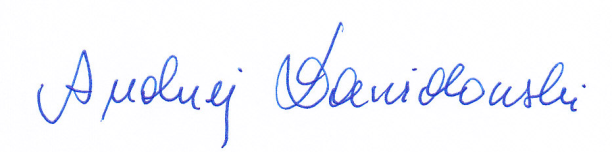 Andrej Danidowski